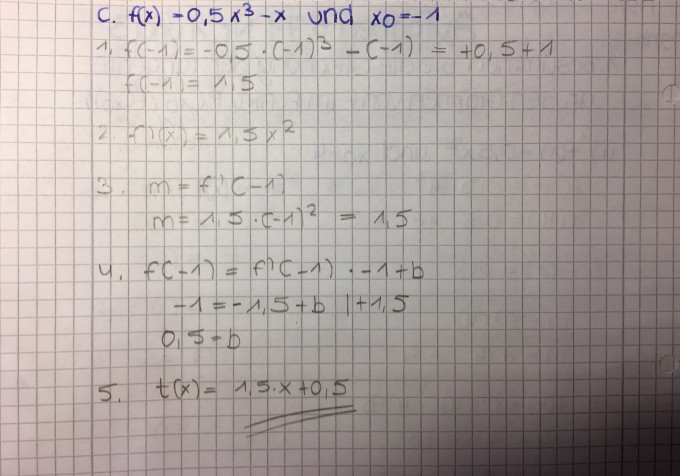 c. f(x) = 0,5x³-x und x0=-1
1. f(-1) = -0,5 · (-1)³ - (-1) = +0,5+1
f(-1) = 1,5
2. f'(x) = 1,5x²
3. m = f'(-1)
m = 1,5 · (-1)² = 1,5
4. f(-1) = f'(-1) · -1+b
-1 = -1,5+b |+1,5
0,5 = b
5. t(x) = 1,5·x+0,5